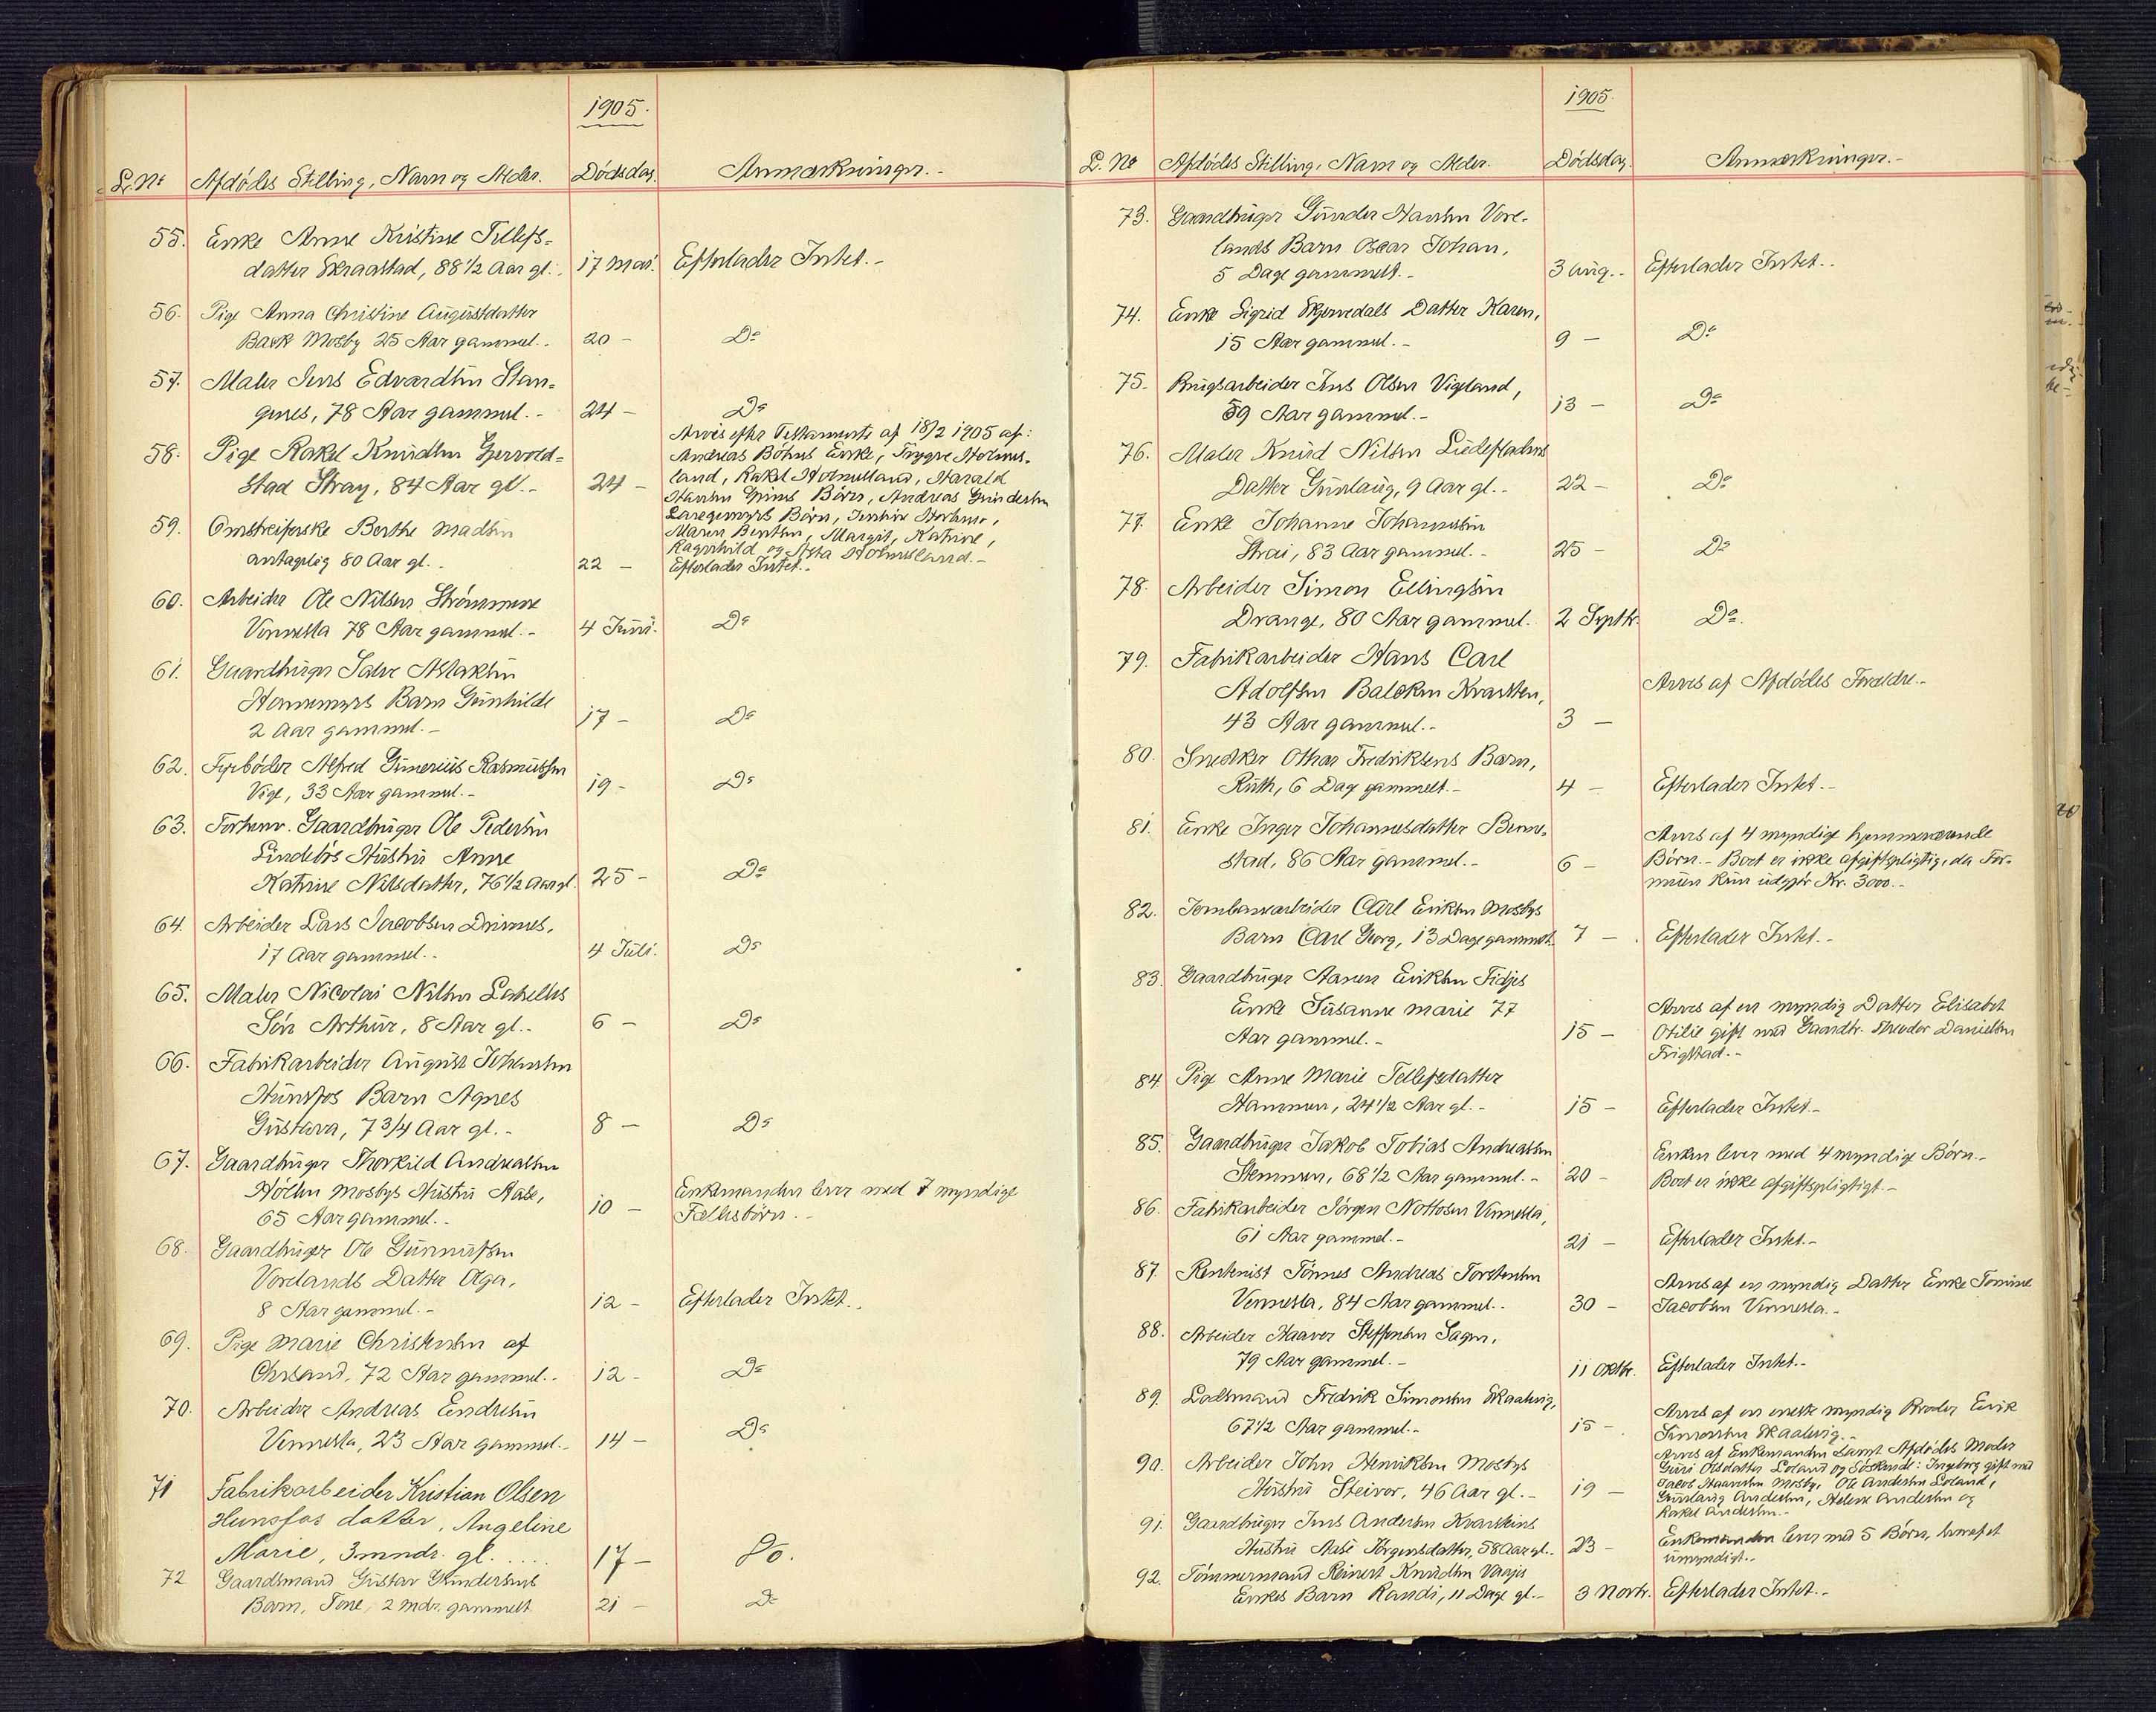 1905.
L.No Afdødes Stilling, Navn og Alder. Dødsdag. Anmærkninger.-
55. Enke Anne Kristine Tellefs-
datter Skraastad, 88 1/2 Aar gl. 17 Mai. Efterlader Intet.-
56. Pige Anna Christine Augustdatter
Baek Mosby 25 Aar gammel.. 20 - Do
57. Maler Jens Edvardsen Stan-
genes, 78 Aar gammel.- 24 - Do
58. Pige Rakel Knudsen Gjervold-
stad Stray, 84 Aar gl.- 24 -
Arves efter Testamente af 18/2 1905 af:
Andreas Böhns Enke, Trygve Holmes-
land, Rakel Holmesland, Harald
Hansen Grims Børn, Andreas Gundersen
Børn,
Maren Berthen, Margit, Katrine,
Ragnhild og Asta Holmesland.-
59. Omstreiferske Berthe Madsen
antagelig 80 Aar gl.. 22 - Efterlader Intet..
60. Arbeider Ole Nilsen Strømmene
Vennesla 78 Aar gammel.- 4 Juni. Do
61. Gaardbruger Salve Aslaksen
Homemyrs Barn Gunhilde
2 Aar gammel.- 17 - Do
62. Fyrbøder Alfred Gunerius Rasmussen
Vige, 33 Aar gammel.- 19 - Do
63. Forhenv. Gaardbruger Ole Pedersen
Lindebøs Hustru Anne
Katrine Nilsdatter, 76 1/2 Aar gl. 25 - Do
64. Arbeider Lars Jacobsen Drivnes,
17 Aar gammel.. 4 Juli. Do
65. Maler Nicolai Nilsen
Søn Arthur, 8 Aar gl.. 6 - Do
66. Fabrikarbeider August Johansen
Hunsfos Barn Agnes
Gustava, 7 3/4 Aar gl.- 8 - Do
67. Gaardbruger Thorkild Andreassen
Høllen Mosbys Hustru Aase,
65 Aar gammel.. 10 - Enkemanden lever med 7 myndige
Fællesbørn.-
68. Gaardbruger Ole Gunnufsen
Vorelands Datter Olga,
8 Aar gammel.- 12 - Efterlader Intet..
69. Pige Marie Christensen af
Chrsand, 72 Aar gammel.. 12 - Do
70. Arbeider Andreas Endresen
Vennesla, 23 Aar gammel.- 14 - Do
71 Fabrikarbeider Kristian Olsen
Hunsfos datter, Angeline
Marie, 3 mndr. gl. .... 17 - Do.
72 Gaardsmand Gustav Gundersens
Barn, Tone, 2 mdr. gammelt 21 - Do
1905.
L.No Afdødes Stilling, Navn og Alder. Dødsdag. Anmærkninger.-
73. Gaardbruger Gunder Hansen Vore-
lands Barn Oscar Johan,
5 Dage gammelt.- 3 Aug.- Efterlader Intet..
74. Enke Sigrid Skjerredals Datter Karen,
15 Aar gammel.- 9 - Do
75. Brugsarbeider Jens Olsen Vigeland,
59 Aar gammel.- 13 - Do
76. Maler Knud Nilsen
Datter Gunlaug, 9 Aar gl.. 22 - Do
77. Enke Johanne Johannesen
Strai, 83 Aar gammel.- 25 - Do
78. Arbeider Simon Ellingsen
Drange, 80 Aar gammel. 2 Septbr. Do.
79. Fabrikarbeider Hans Carl
Adolfsen Balchen Kvarsten,
43 Aar gammel.- 3 - Arves af Afdødes Forældre.-
80. Snedker Othar Fredriksens Barn,
Ruth, 6 Dage gammelt.- 4 - Efterlader Intet.-
81. Enke Inger Johannesdatter Benne-
stad, 86 Aar gammel.- 6 - Arves af 4 myndige hjemmeværende
Børn.- Boet er ikke afgiftspligtig, da For-
muen kun udgjør Kr. 3000.-
82. Jernbanearbeider Carl Eriksen Mosbys
Barn Carl Georg, 13 Dage gammelt. 7 - Efterlader Intet.-
83. Gaardbruger Aanen Eriksen Fidjes
Enke Susanne Marie 77
Aar gammel.- 15 - Arves af en myndig Datter Elisabet
Otilie gift med Gaardbr. Theodor Danielsen
Frigstad.-
84. Pige Anne Marie Tellefsdatter
Hammen, 24 1/2 Aar gl.- 15 - Efterlader Intet.-
85. Gaardbruger Jakob Tobias Andreassen
Stemmen, 68 1/2 Aar gammel.- 20 - Enken lever med 4 myndige Børn.-
Boet er ikke afgiftspligtigt.-
86. Fabrikarbeider Jørgen Nottosen Vennesla,
61 Aar gammel.- 21 - Efterlader Intet.-
87. Rentenist Tønnes Andreas Torstensen
Vennesla, 84 Aar gammel.. 30 - Arves af en myndig Datter Enke Tomine
Jacobsen Vennesla.-
88. Arbeider Haaver Steffensen Sagen,
79 Aar gammel.- 11 Oktbr. Efterlader Intet.-
89. Lodsmand Fredrik Simonsen Skaalevig,
67 1/2 Aar gammel.- 15 - Arves af en eneste myndig Broder Erik
Simonsen Skaalevig.-
90. Arbeider John Henriksen Mosbys
Hustru Steivor, 46 Aar gl.- 19 - Arves af Enkemanden samt Afdødes Moder
Guri Olsdatter Loland og Søskende: Ingeborg gift med
Jacob Haanesen Mosby, Ole Andersen Loland,
Gunlaug Andersen, Helene Andersen og
Rakel Andersen.-
91. Gaardbruger Jens Andersen Kvarsteins
Hustru Aase Jørgensdatter, 58 Aar gl.. 23 - Enkemanden lever med 5 Børn, hvoraf et
umyndigt..
92. Tømmermand Reinert Knudsen Varøjs
Enkes Barn Randi, 11 Dage gl.- 3 Novbr. Efterlader Intet.-